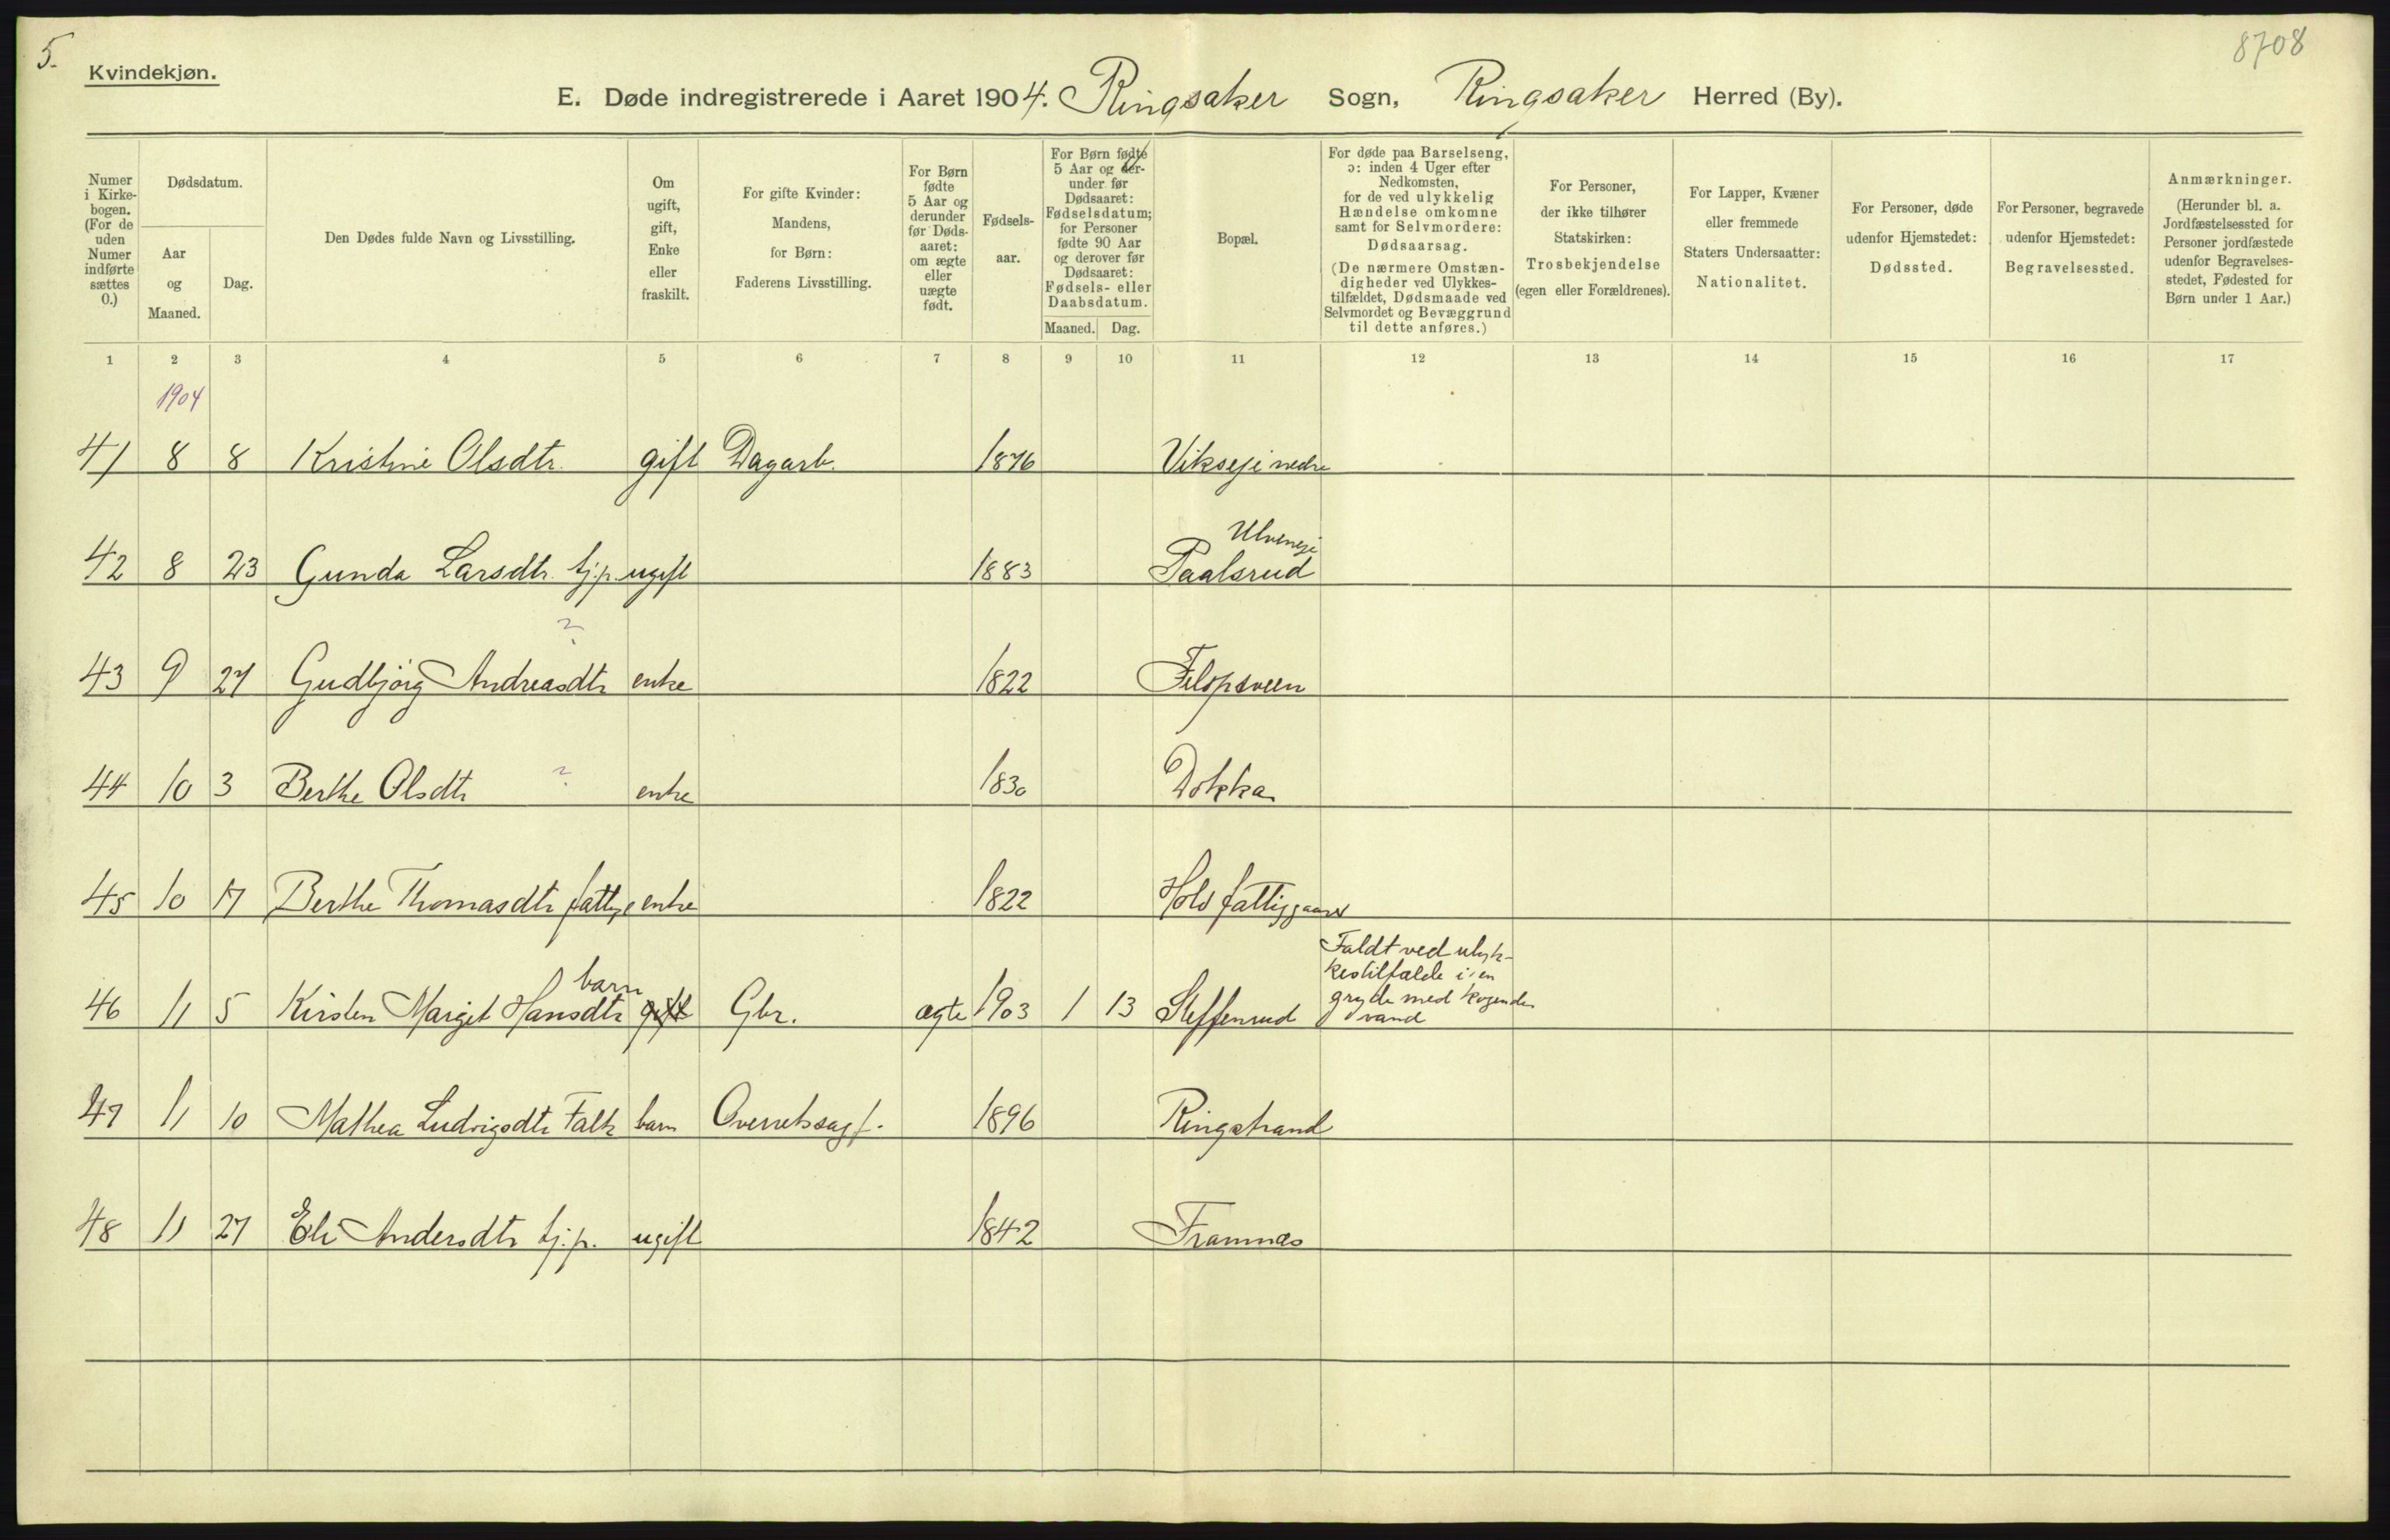 5.
8708
Kvindekjøn.
E. Døde indregistrerede i Aaret 1904. Ringsaker Sogn, Ringsaker Herred (By).
Numer i Kirkebogen. (For de uden Numer indførte sættes 0.)
Dødsdatum.
Aar og Maaned.
Dag.
Den Dødes fulde Navn og Livsstilling.
Om ugift, gift, Enke eller fraskilt.
For gifte Kvinder: Mandens, for Børn: Faderens Livsstilling.
For Børn fødte 5 Aar og derunder før Dødsaaret: om ægte eller uægte født.
Fødselsaar.
For Børn fødte 5 Aar og derunder før Dødsaaret: Fødselsdatum; for Personer fødte 90 Aar og derover før Dødsaaret: Fødsels- eller Daabsdatum.
Maaned. Dag.
Bopæl.
For døde paa Barselseng, ɔ: inden 4 Uger efter Nedkomsten, for de ved ulykkelig Hændelse omkomne samt for Selvmordere: Dødsaarsag.
(De nærmere Omstændigheder ved Ulykkestilfældet, Dødsmaade ved Selvmordet og Bevæggrund til dette anføres.)
For Personer, der ikke tilhører Statskirken: Trosbekjendelse (egen eller Forældrenes).
For Lapper, Kvæner eller fremmede Staters Undersaatter: Nationalitet.
For Personer, døde udenfor Hjemstedet: Dødssted.
For Personer, begravede udenfor Hjemstedet: Begravelsessted.
Anmærkninger. (Herunder bl. a. Jordfæstelsessted for Personer jordfæstede udenfor Begravelsesstedet, Fødested for Børn under 1 Aar.)
1 2 3 4 5 6 7 8 9 10 11 12 13 14 15 16 17
1904
41 8 8 Kristine Olsdtr. gift Dagarb. 1876 Vikseje nedre
Ulveneje
42 8 23 Gunda Larsdtr. tj.p. ugift 1883 Paalsrud
?
43 9 27 Gudbjörg Andreasdtr enke 1822 Filopsveen
44 10 3 Berthe Olsdtr ? enke 1830 Dokka
45 10 17 Berthe Thomasdtr fattige enke 1822 Hols fattiggaard
46 11 5 Kirsten Margit Hansdtr barn gift Gbr. ægte 1903 1 13 Steffenrud
Faldt ved ulyk-
kestilfælde i en
gryde med kogende
vand
47 11 10 Mathea Ludvigsdtr Falk barn Overretssagf. 1896 Ringstrand
48 11 27 Eli Andersdtr tj.p. ugift 1842 Framnæs